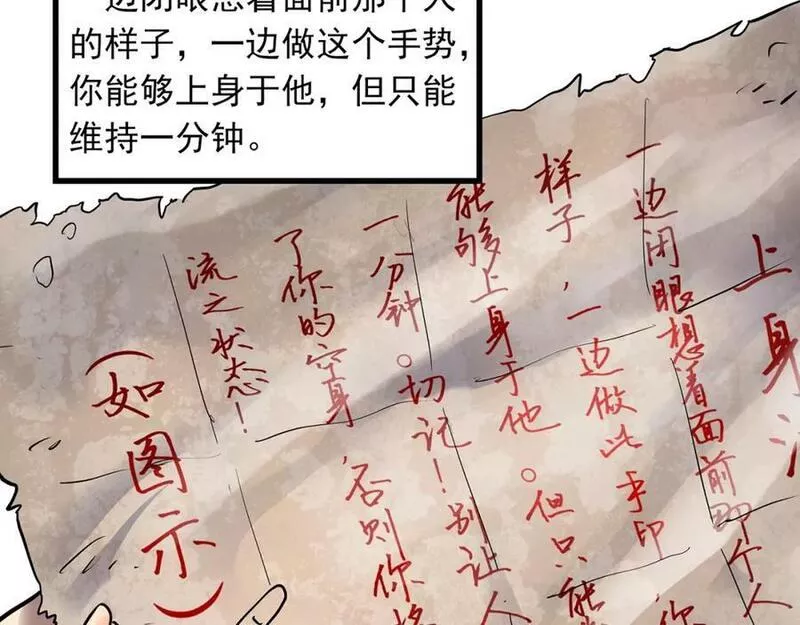 一边闭眼想着面前那个人
的样子，一边做这个手势，
你能够上身于他，但只能
维持一分钟。
上身法
一边闭眼想着面前那个人
样子，一边做此手印，你
能够上身于他。但只能
一分钟。切记！别让人
了你的空身，否则你将
流之状态！
（如图示）